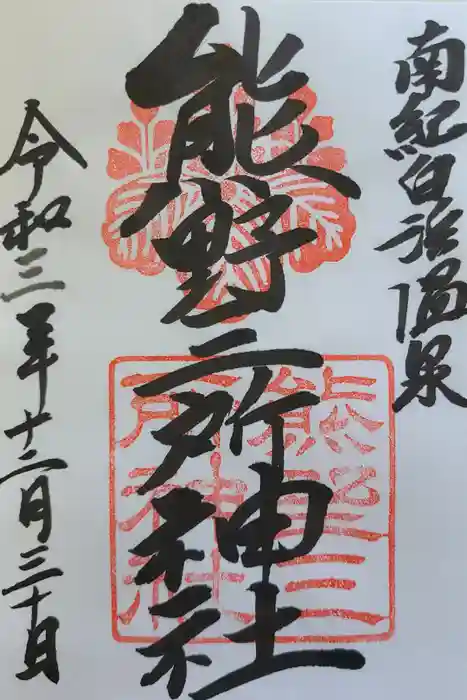 南紀白浜温泉
熊野三所神社
熊野三所神社
令和三年十二月三十日